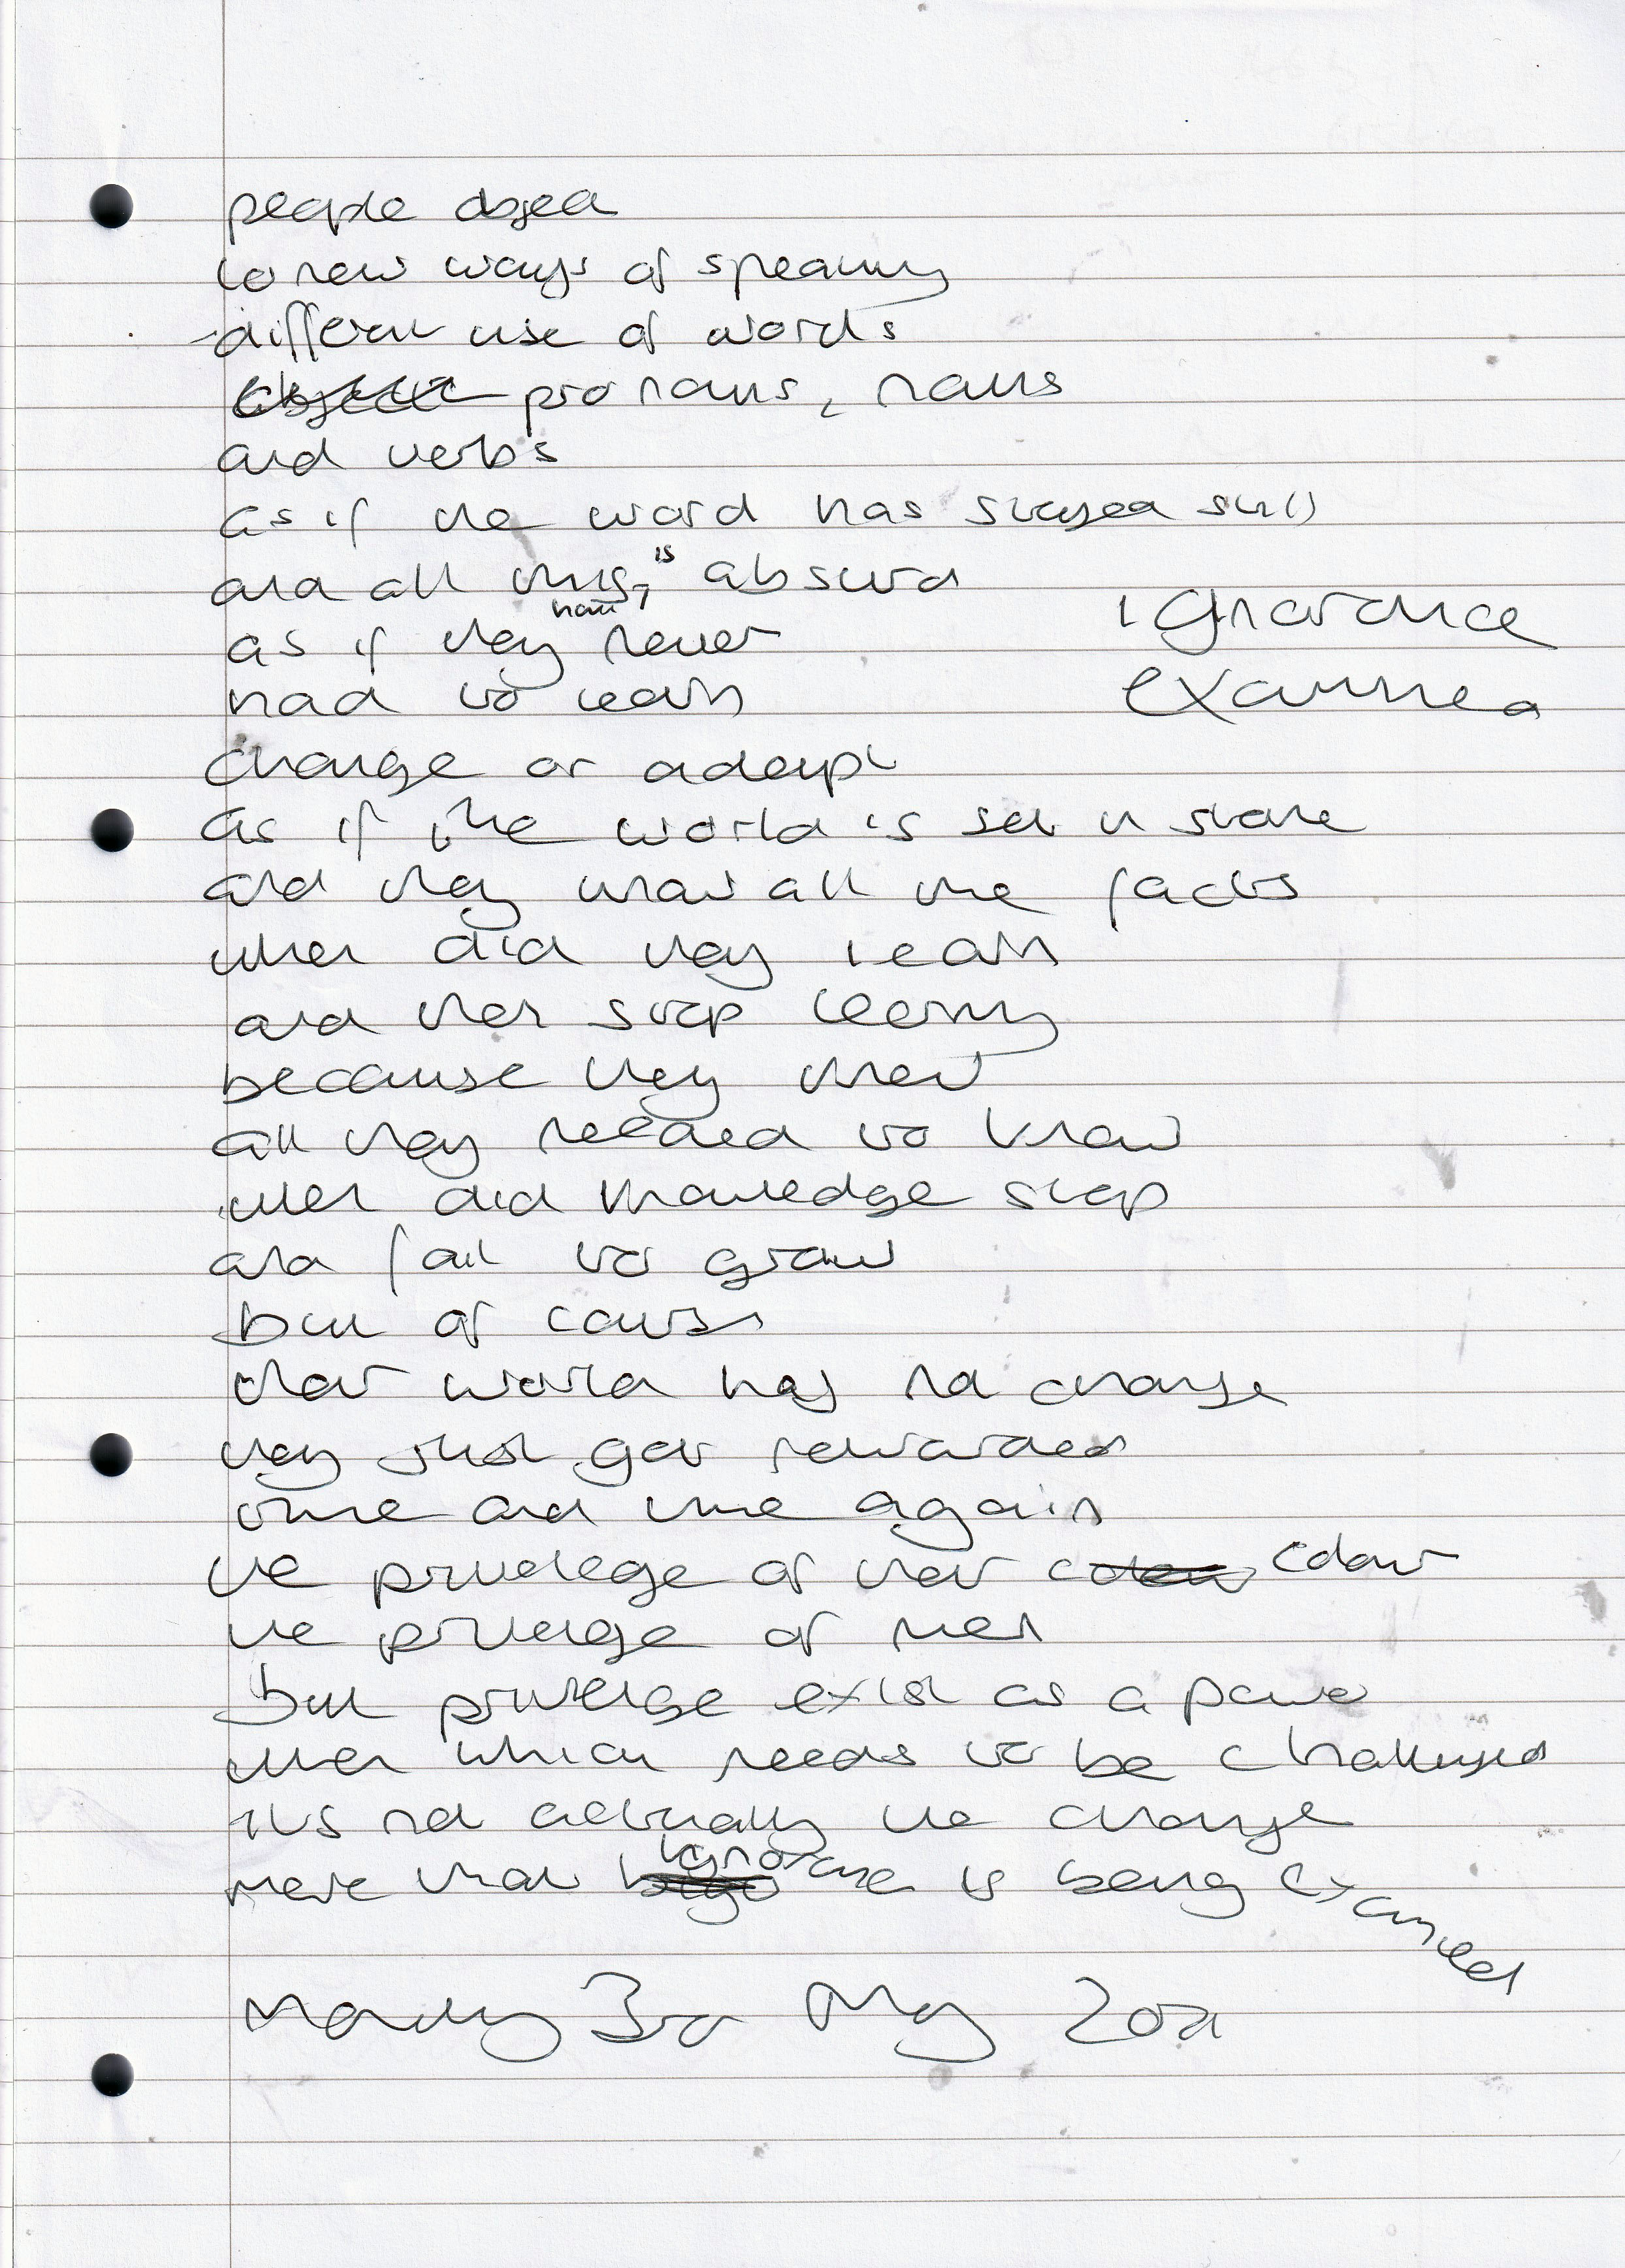 people object
to new ways of speaking
different use of words
object pronouns, nouns
and verbs
as if the word has stayed still
and all this, is absurd
as if they have never
had to learn
ignorance
examined
change or adapt
as if the world is set in stone
and they know all the facts
when did they learn
and then stop learning
because they knew
all they needed to know
when did knowledge stop
and fail to grow
but of course
their world has not change
they just get rewarded
time and time again
the privilege of their colour
the privilege of men
but privilege exist as a power
when which needs to be challenged
its not actually the change
more that ignorance is being examined
Monday 3rd May 2021